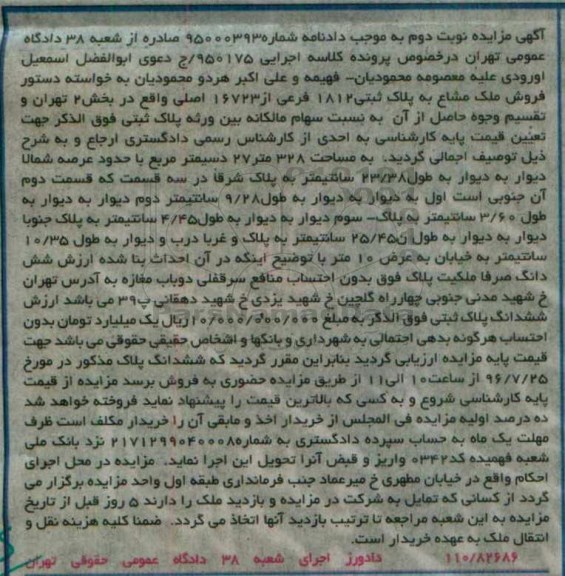 آگهی مزایده نوبت دوم به موجب دادنامه شماره۹۵۰۰۰۳۹۳ صادره از شعبه ۳۸ دادگاه
عمومی تهران درخصوص پرونده کلاسه اجرایی ۹۵۰۱۷۵/ج دعوی ابوالفضل اسمعیل
اورودی علیه معصومه محمودیان- فهیمه و علی اکبر هردو محمودیان به خواسته دستور
فروش ملک مشاع به پلاک ثبتی۱۸۱۲ فرعی از۱۶۷۲۳ اصلی واقع در بخش۲ تهران و
تقسیم وجوه حاصل از آن به نسبت سهام مالکانه بین ورثه پلاک ثبتی فوق الذکر جهت
تعیین قیمت پایه کارشناسی به احدی از کارشناس رسمی دادگستری ارجاع و به شرح
ذیل توصیف اجمالی گردید. به مساحت ۳۲۸ متر۲۷ دسیمتر مربع با حدود عرصه شمالا
دیوار به دیوار به طول۲۳/۳۸ سانتیمتر به پلاک شرقا در سه قسمت که قسمت دوم
آن جنوبی است اول به دیوار به دیوار به طول۹/۲۸ سانتیمتر دوم دیوار به دیوار به
طول ۳/۶۰ سانتیمتر به پلاک- سوم دیوار به دیوار به طول۴/۴۵ سانتیمتر به پلاک جنوبا
دیوار به دیوار به طول ۲۵/۴۵ سانتیمتر به پلاک و غربا درب و دیوار به طول ۱۰/۳۵
سانتیمتر به خیابان به عرض ۱۰ متر با توضیح اینکه در آن احداث بنا شده ارزش شش
دانگ صرفا ملکیت پلاک فوق بدون احتساب منافع سرقفلی دوباب مغازه به آدرس تهران
خ شهید مدنی جنوبی چهارراه گلچین خ شهید یزدی خ شهید دهقانی پ۳۹ می باشد ارزش
ششدانگ پلاک ثبتی فوق الذکر به مبلغ ۱۰/۰۰۰/۰۰۰/۰۰۰ریال یک میلیارد تومان بدون
احتساب هرگونه بدهی احتمالی به شهرداری و بانکها و اشخاص حقیقی حقوقی می باشد جهت
قیمت پایه مزایده ارزیابی گردید بنابراین مقرر گردید که ششدانگ پلاک مذکور در مورخ
۹۶/۷/۲۵ از ساعت۱۰ الی۱۱ از طریق مزایده حضوری به فروش برسد مزایده از قیمت
پایه کارشناسی شروع و به کسی که بالاترین قیمت را پیشنهاد نماید فروخته خواهد شد
ده درصد اولیه مزایده فی المجلس از خریدار اخذ و مابقی آن را خریدار مکلف است ظرف
مهلت یک ماه به حساب سپرده دادگستری به شماره۲۱۷۱۲۹۹۰۴۰۰۰۸ نزد بانک ملی
شعبه فهمیده کد۰۳۴۲ واریز و قبض آنرا تحویل این اجرا نماید. مزایده در محل اجرای
احکام واقع در خیابان مطهری خ میرعماد جنب فرمانداری طبقه اول واحد مزایده برگزار می
گردد از کسانی که تمایل به شرکت در مزایده و بازدید ملک را دارند ۵ روز قبل از تاریخ
مزایده به این شعبه مراجعه تا ترتیب بازدید آنها اتخاذ می گردد. ضمنا کلیه هزینه نقل و
انتقال ملک به عهده خریدار است.
۱۱۰/۸۲۶۸۶ دادورز اجرای شعبه ۳۸ دادگاه عمومی حقوقی تهران